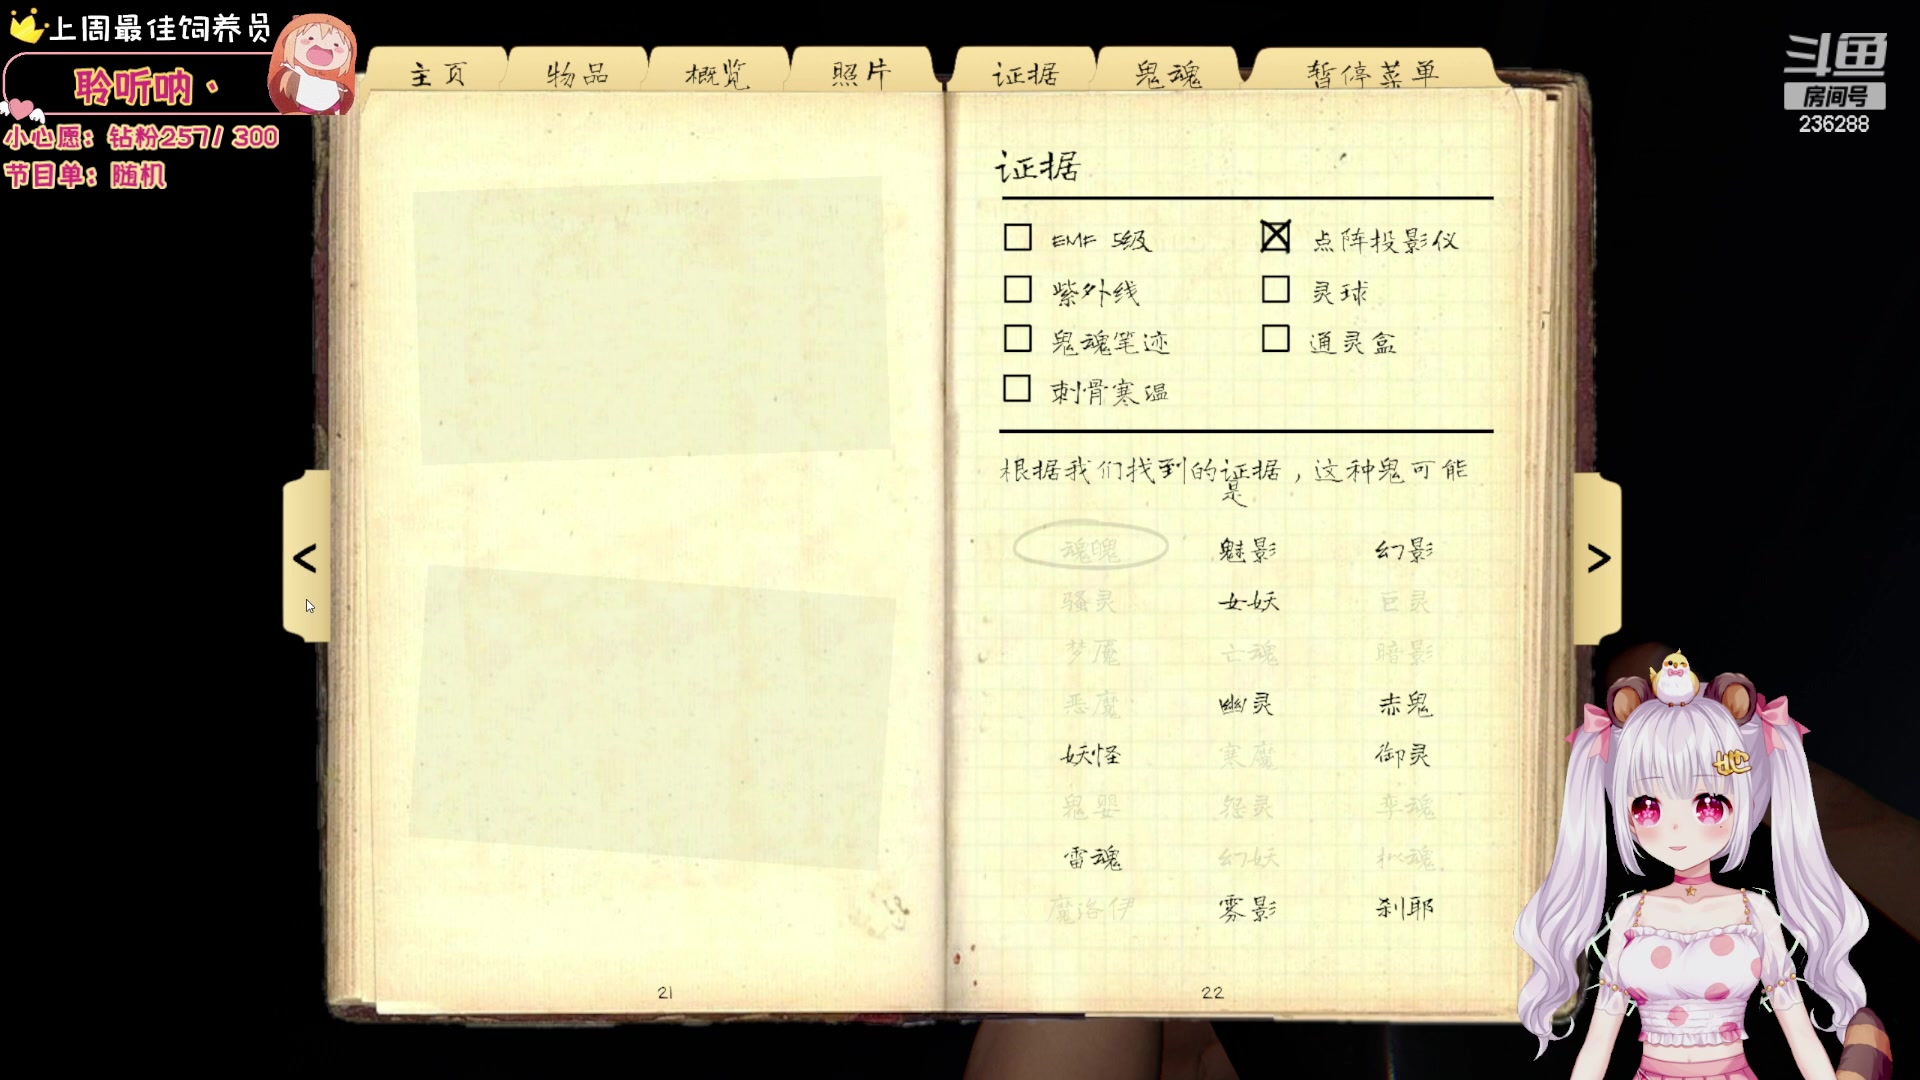 上周最佳饲养员
聆听呐·
小心愿：钻粉257/ 300
节目单：随机
斗鱼
房间号
236288
主页 物品 概览 照片 证据 鬼魂 暂停菜单
证据
EMF 5级 点阵投影仪
紫外线 灵球
鬼魂笔迹 通灵盒
刺骨寒温
根据我们找到的证据，这种鬼可能
是
魂魄 魅影 幻影
骚灵 女妖 巨灵
梦魇 亡魂 暗影
恶魔 幽灵 赤鬼
妖怪 寒魔 御灵
鬼婴 怨灵 孪魂
雷魂 幻妖 拟魂
魔洛伊 雾影 刹耶
<
>
21
22